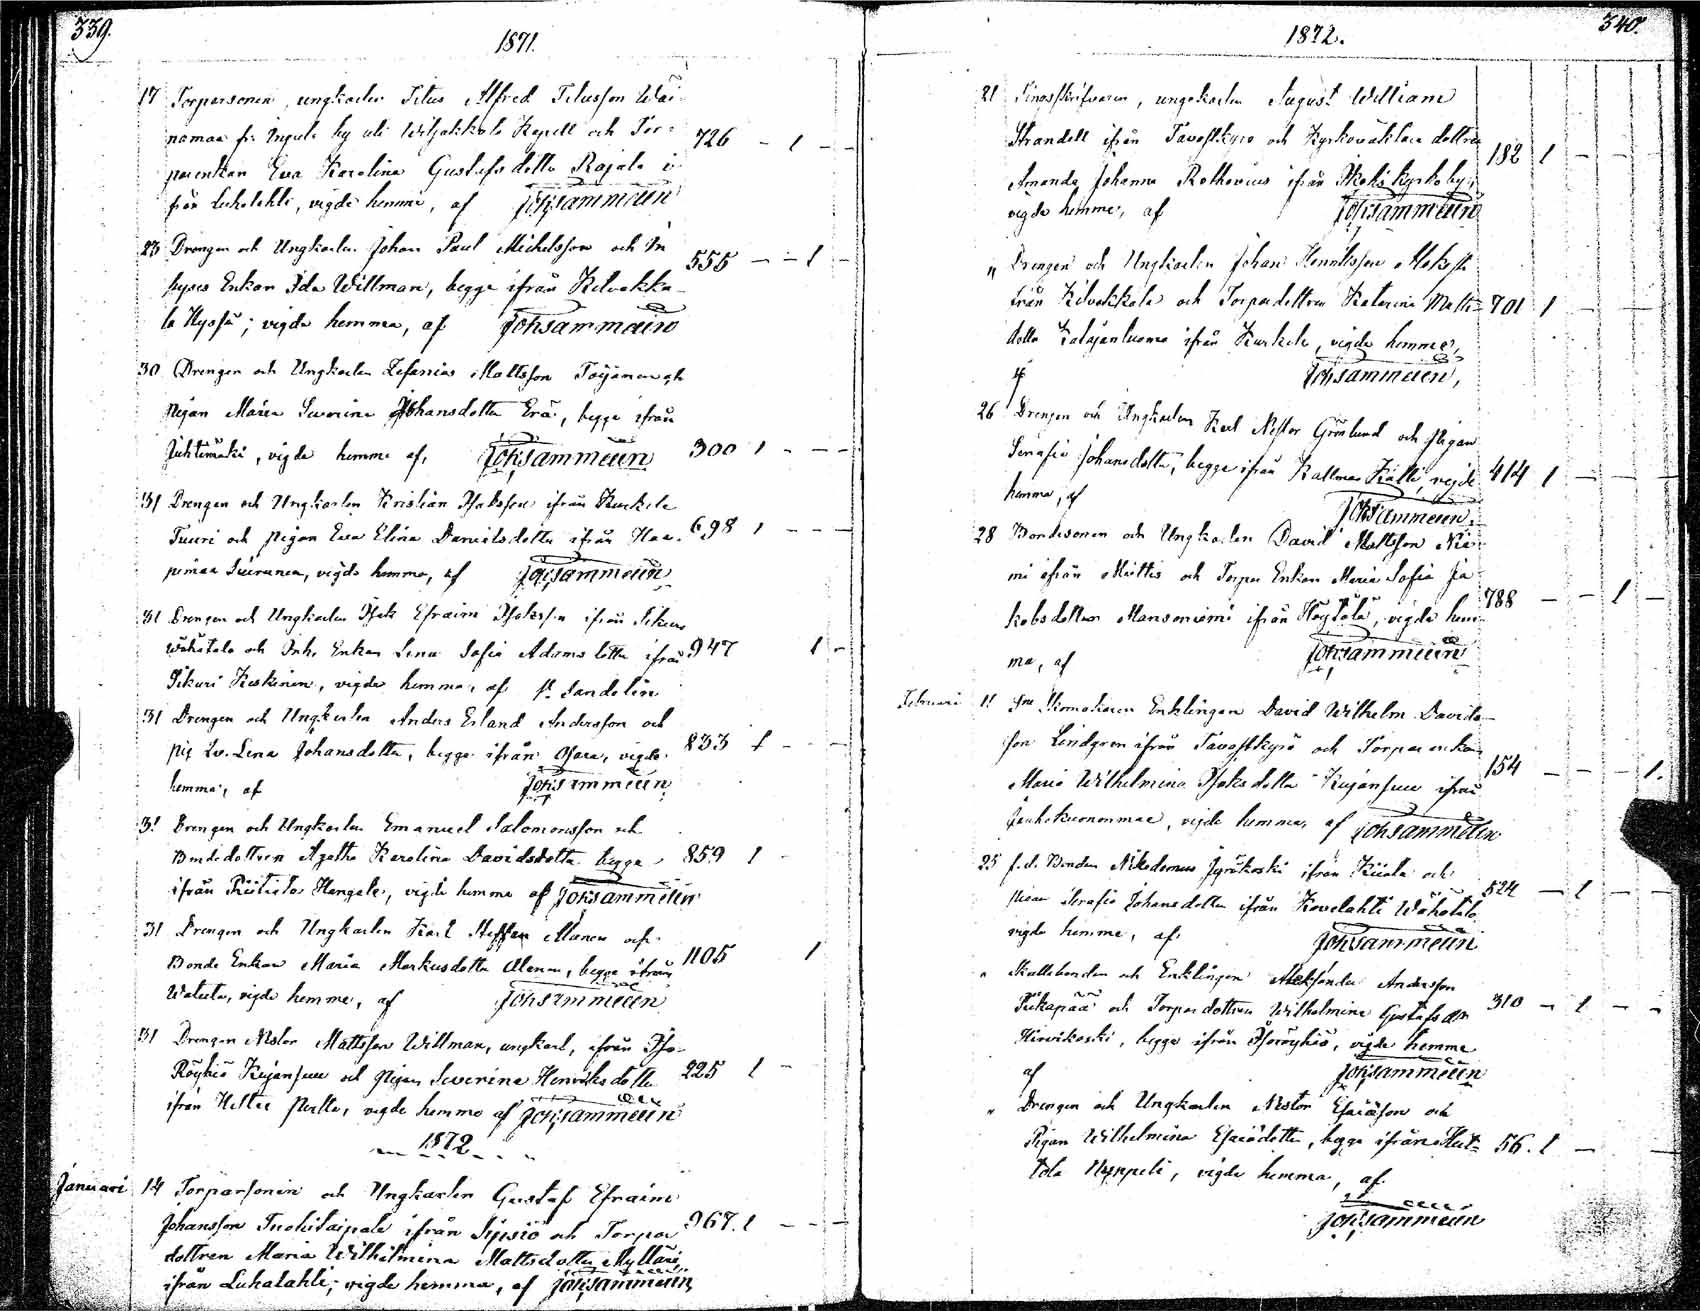 339.
1871.
17 Torparsonen, ungkarlen Titus Alfred Titusson Wäi-
namaa fr. by uti Wiljakkala Kapell och Tor-
parenkan Eva Karolina Gustafsdotter Rajala i-
från Luhalahti, vigde hemma, af Johsammelin
726 - 1 - -
23 Drengen och Ungkarlen Johan Paul Michelsson och In-
hyses Enkan Ida Willman, begge ifrån Kilvakka-
la Hyssä; vigde hemma, af Johsammelin
555 - - 1 -
30 Drengen och Ungkarlen Zefanias Mattsson och
pigan Maria Severina Johansdotter Erä, begge ifrån
Juhtimäki, vigde hemma af, Johsammelin
300 1 - - -
31 Drengen och Ungkarlen Kristian Isaksson ifrån Kurkela
Tuuri och pigan Eva Elina Danielsdotter ifrån Haa-
pimaa, vigde hemma, af Johsammelin
698 1 - - -
31 Drengen och Ungkarlen Isak Efraim Isaksson ifrån Sikuri
Wähätalo och Inh. Enkan Lena Sofia Adamsdotter ifrån
Sikuri Keskinen, vigde hemma, af Sandelin
947 1 -
31 Drengen och Ungkarlen Anders Erland Andersson och
pig. Lv. Lena Johansdotter, begge ifrån Osara, vigde
hemma, af Johsammelin
833 1 - - -
31 Drengen och Ungkarlen Emanuel Salomonsson och
Bondedottren Agatha Karolina Davidsdotter begge
ifrån Riitiala Hangala, vigde hemma af Johsammelin
859 1 -
31 Drengen och Ungkarlen Karl Steffan Manen och
Bonde Enkan Maria Markusdotter Alanen, begge ifrån
Watula, vigde hemma, af Johsammelin
1105 1
31 Drengen Nestor Mattsson Willman, ungkarl, ifrån Iso-
Röyhiö Kujansuu och Pigan Severina Henriksdotter
ifrån Perttu, vigde hemma af Johsammelin
225 1 -
1872
Januari 14 Torparsonen och Ungkarlen Gustaf Efraim
Johansson Tuohitaipale ifrån Sipsiö och Torpar
dottren Maria Wilhelmina Mattsdotter Mylläri
ifrån Luhalahti, vigde hemma, af Johsammelin
967. 1 - - -
340.
1872.
21 Tingsskrifvaren, ungkarlen August William
Strandell ifrån Tavastkyro och Kyrkoväktare dottren
Amanda Johanna Rothovius ifrån Ikalis kyrkoby;
vigde hemma, af Johsammelin
182 1 - - -
" Drengen och Ungkarlen Johan Henriksson
från Kilvakkala och Torpardottren Katarina Matts-
dotter Kalajanluoma ifrån Kurkela, vigde hemma,
af Johsammelin,
701 1 - - -
26 Drengen och Ungkarlen Karl Nestor Grönlund och Pigan
Serafia Johansdotter, begge ifrån Kallmaa Kalli, vigde
hemma, af Johsammelin.
414 1 - - -
28 Bondesonen och Ungkarlen David Mattsson Nie-
mi ifrån Miettis och Torpar Enkan Maria Sofia Ja-
kobsdotter Mansoniemi ifrån Höytölä, vigde hem-
ma, af Johsammelin
788 - - 1 -
Februari 11 Skomakaren Enklingen David Wilhelm Davids-
son Lindgren ifrån Tavastkyrö och Torparenkan
Maria Wilhelmina Isaksdotter Kujansuu ifrån
vigde hemma, af Johsammelin
154 - - - 1.
25 f.d. Bonden Nikodemus Jyräkoski ifrån Kiiala och
pigan Serafia Johansdotter ifrån Kovelahti Wähätalo
vigde hemma, af Johsammelin
524 - 1 - -
" Skattebonden och Enklingen Aleksander Andersson
och Torpardottren Wilhelmina Gustafsdtr
Hirvikoski, begge ifrån Isoröyhiö, vigde hemma
af Johsammelin
310 - 1 - -
" Drengen och Ungkarlen Nestor Esaiäson och
Pigan Wilhelmina Esaiädotter, begge ifrån Heit-
tola Nyppeli, vigde hemma, af
Johsammelin
56. 1 - -